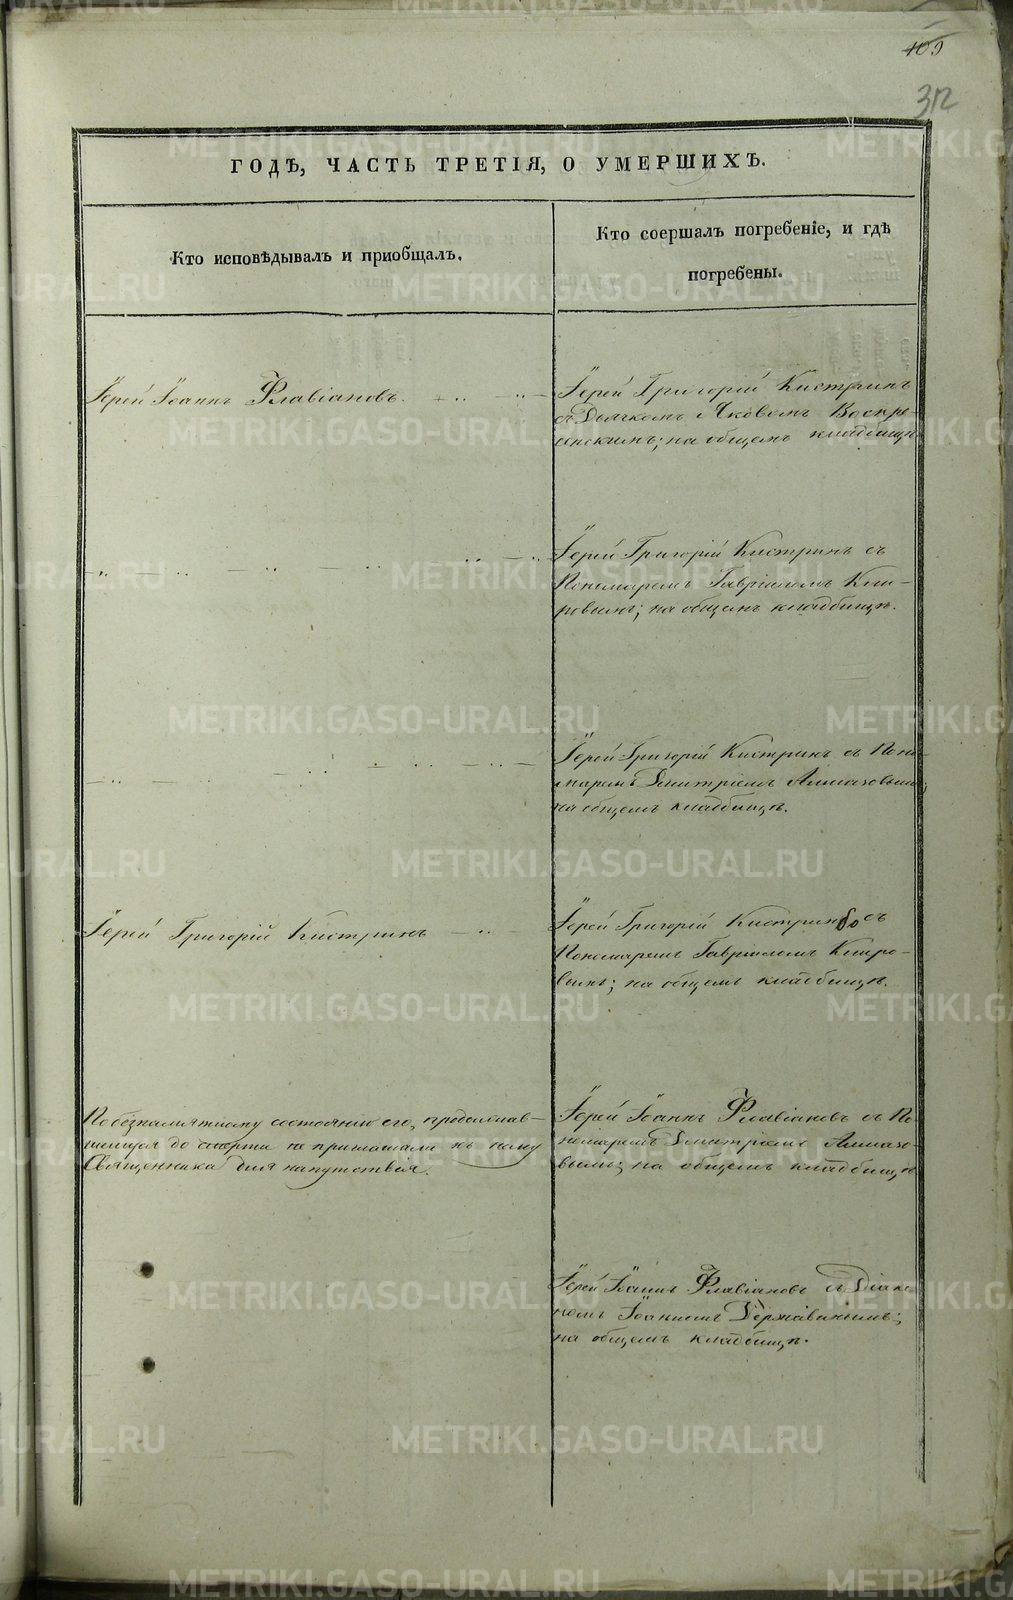 109
312
ГОДѢ, ЧАСТЬ ТРЕТІЯ, О УМЕРШИХЪ.
Кто исповѣдывалъ и приобщалъ.
Кто соершалъ погребеніе, и гдѣ
погребены.
Іерей Іоаннъ Флавіановъ.
Іерей Григорій Кистринъ
съ Дьячкомъ Яковомъ Воскре-
сенскимъ; на общемъ кладбищѣ
Іерей Григорій Кистринъ съ
Пономаремъ Гавріиломъ Кип-
ровымъ; на общемъ кладбищѣ.
Іерей Григорій Кистринъ съ Поно-
маремъ Димитріемъ Алмазовымъ;
на общемъ кладбищѣ.
Іерей Григорій Кистринъ
Іерей Григорій Кистринъ съ
Пономаремъ Гавріиломъ Кипро-
вымъ; на общемъ кладбищѣ.
По безпамятному состоянію его, продолжав-
шемуся до смерти не приглашали къ нему
Священника для напутствія.
Іерей Іоаннъ Флавіановъ съ По-
номаремъ Димитріемъ Алмазо-
вымъ; на общемъ кладбищѣ
Іерей Іоаннъ Флавіановъ съ Діако-
номъ Іоанномъ Державинымъ;
на общемъ кладбищѣ.
METRIKI.GASO-URAL.RU